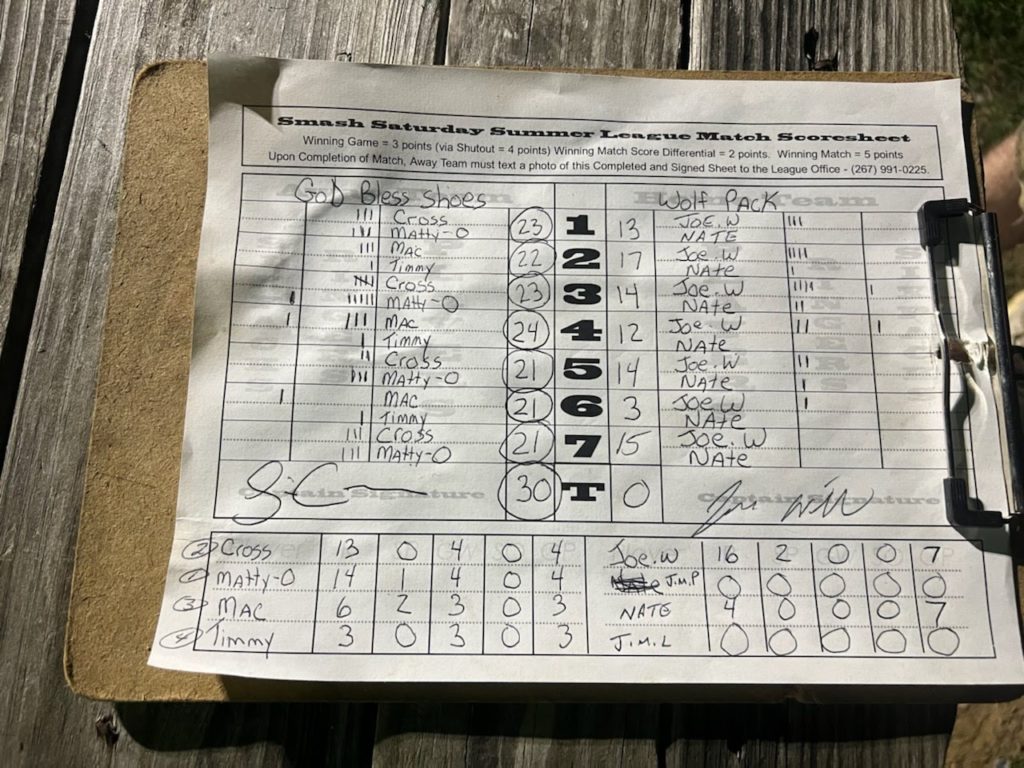 Smash Saturday Summer League Match Scoresheet
Winning Game = 3 points (via Shutout = 4 points) Winning Match Score Differential = 2 points. Winning Match = 5 points
Upon Completion of Match, Away Team must text a photo of this Completed and Signed Sheet to the League Office - (267) 991-0225.
GoD Bless Shoes Wolf PACK
Cross 23 1 13 JOE.W
MAtty-O NATE
MAC 22 2 17 Joe.W
Timmy NAte
Cross 23 3 14 Joe.W
MAtty-O NAte
MAC 24 4 12 Joe.W
Timmy NAte
Cross 21 5 14 Joe.W
MAtty-O NAte
MAC 21 6 3 Joe W
Timmy NAte
Cross 21 7 15 Joe.W
MAtty-O NAte
30 T 0
Captain Signature Captain Signature
2 Cross 13 0 4 0 4 Joe.W 16 2 0 0 7
1 MAtty-O 14 1 4 0 4 J.M.P 0 0 0 0 0
3 MAC 6 2 3 0 3 NATE 4 0 0 0 7
4 Timmy 3 0 3 0 3 J.M.L 0 0 0 0 0